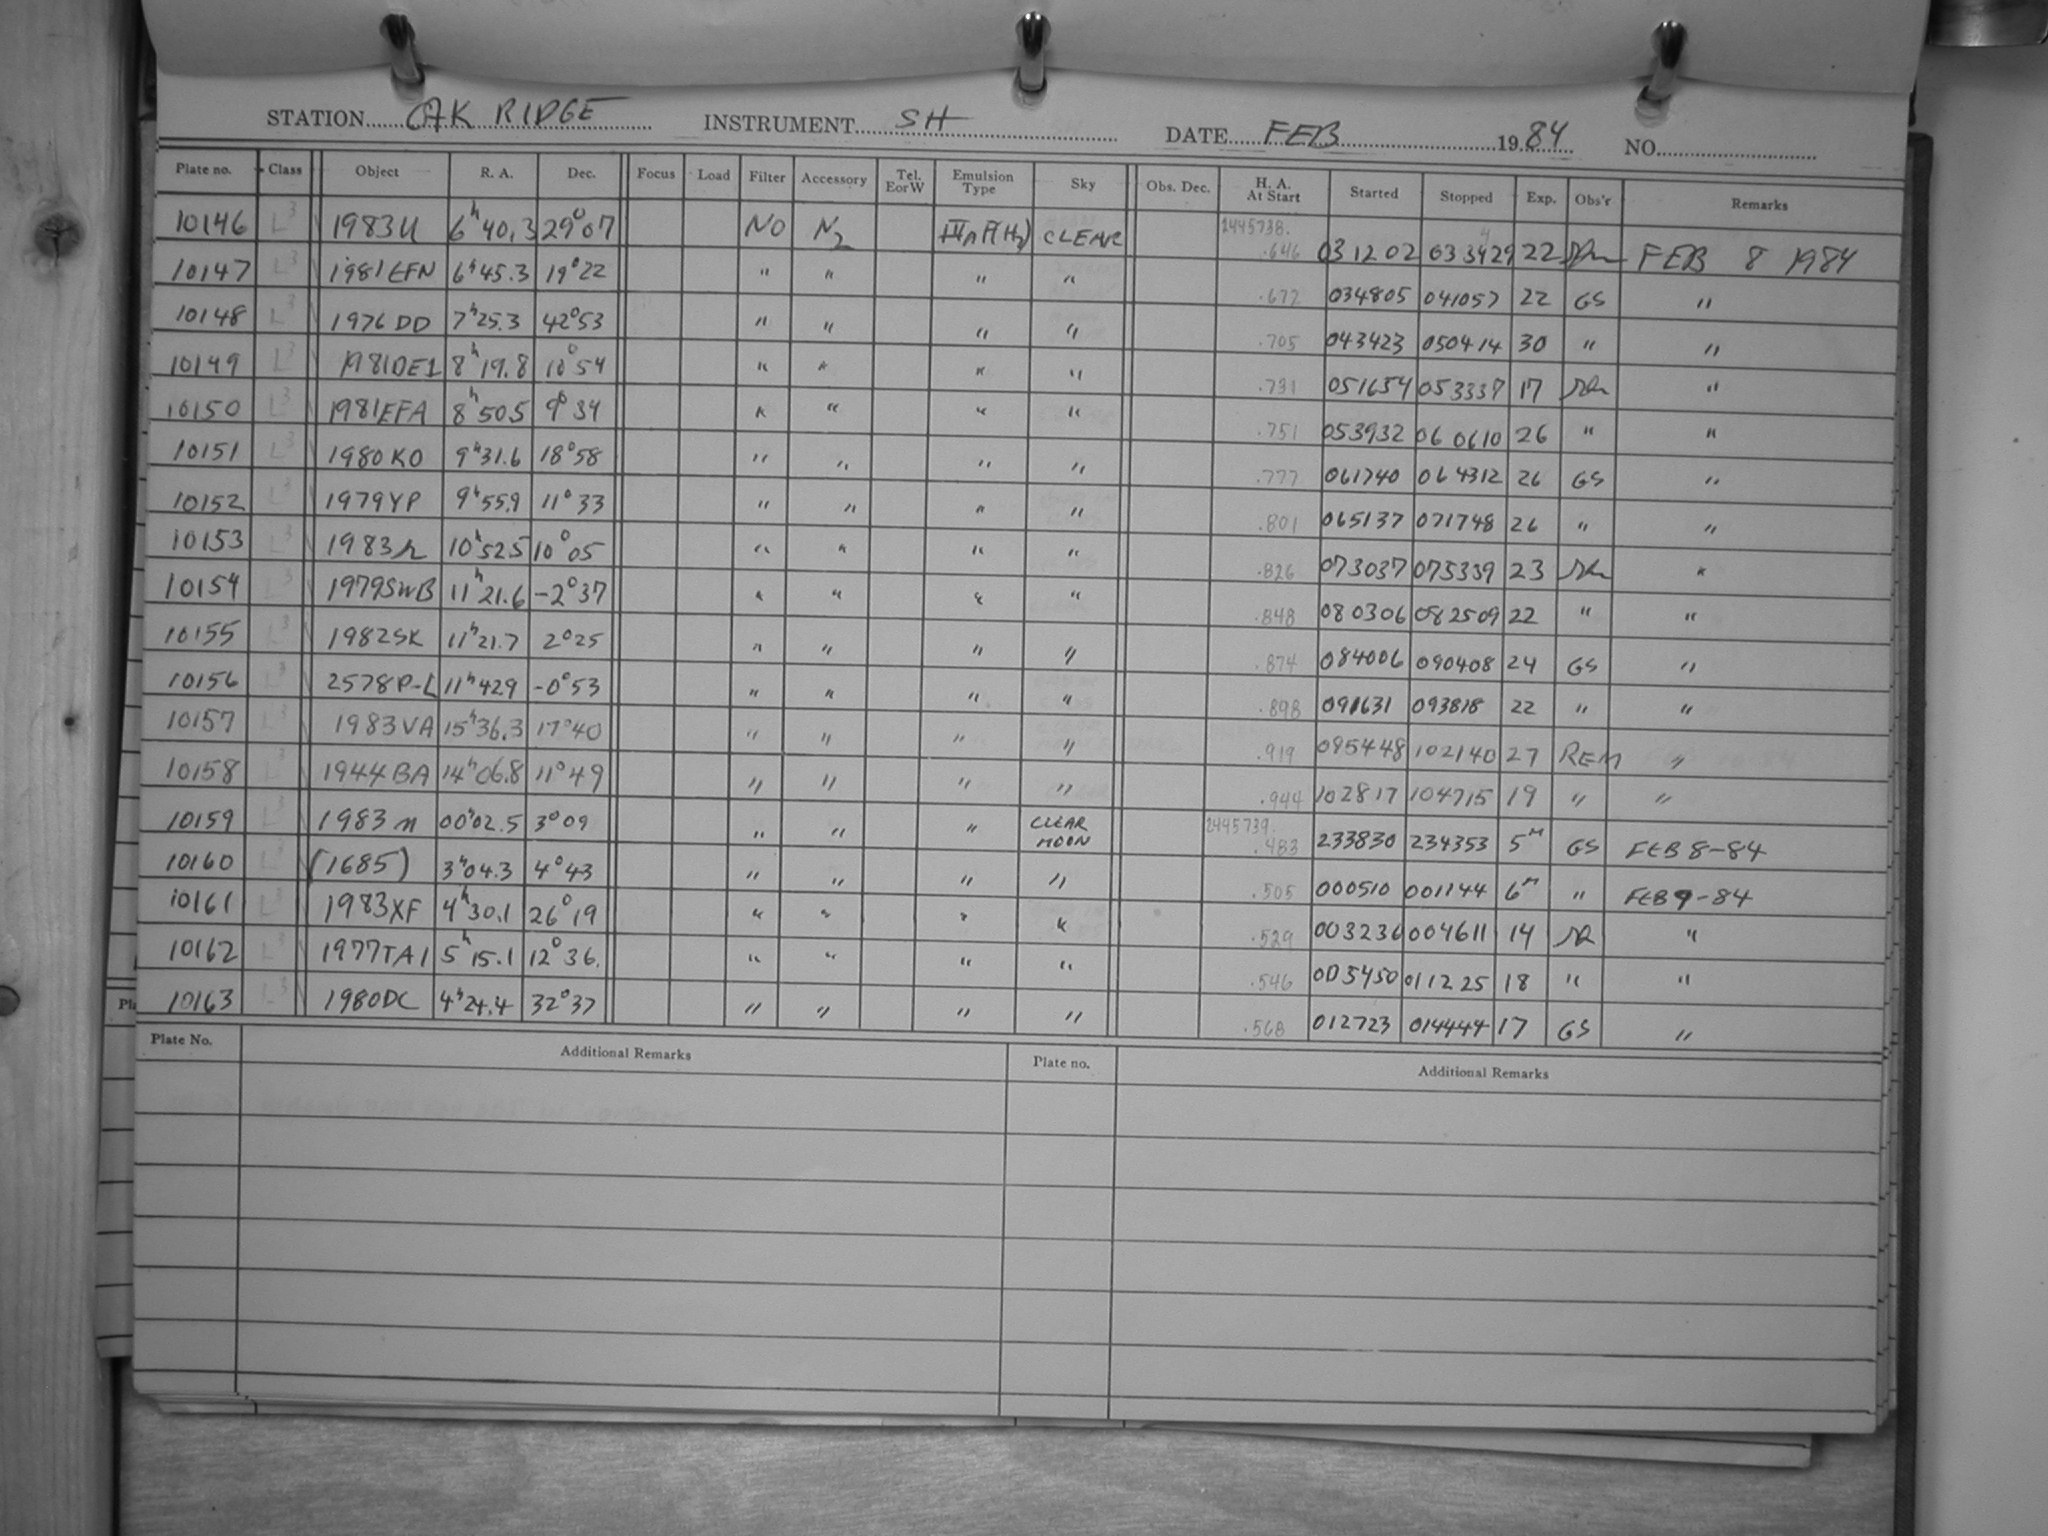 STATION OAK RIDGE INSTRUMENT SH DATE FEB 1984 NO.
Plate no. Class Object R. A. Dec. Focus Load Filter Accessory Tel. E or W Emulsion Type Sky Obs. Dec. H. A. At Start Started Stopped Exp. Obs'r Remarks
10146 L3 1983U 6h40.3 29°07 NO N2 IIIAF(H2) CLEAR 2445738. .646 031202 033429 22 FEB 8 1984
10147 L3 1981EFN 6h45.3 19°22 " " " " .672 034805 041057 22 GS "
10148 L3 1976DD 7h25.3 42°53 " " " " .705 043423 050414 30 " "
10149 L3 1981DE1 8h19.8 10°54 " " " " .731 051654 053337 17 "
10150 L3 1981EFA 8h50.5 9°34 " " " " .751 053932 060610 26 " "
10151 L3 1980KO 9h31.6 18°58 " " " " .777 061740 064312 26 GS "
10152 L3 1979YP 9h55.9 11°33 " " " " .801 065137 071748 26 " "
10153 L3 1983r 10h52.5 10°05 " " " " .826 073037 075339 23 "
10154 L3 1979SWB 11h21.6 -2°37 " " " " .848 080306 082509 22 " "
10155 L3 1982SK 11h21.7 2°25 " " " " .874 084006 090408 24 GS "
10156 L3 2578P-L 11h42.9 -0°53 " " " " .898 091631 093818 22 " "
10157 L3 1983VA 15h36.3 17°40 " " " " .919 095448 102140 27 REM "
10158 L3 1944BA 14h06.8 11°49 " " " " .944 102817 104715 19 " "
10159 L3 1983n 00h02.5 3°09 " " " CLEAR MOON 2445739. .483 233830 234353 5M GS FEB 8-84
10160 L3 (1685) 3h04.3 4°43 " " " " .505 000510 001144 6M " FEB 9-84
10161 L3 1983XF 4h30.1 26°19 " " " " .529 003236 004611 14 "
10162 L3 1977TA1 5h15.1 12°36. " " " " .546 005450 011225 18 " "
10163 L3 1980DC 4h24.4 32°37 " " " " .568 012723 014444 17 GS "
Plate No. Additional Remarks Plate no. Additional Remarks